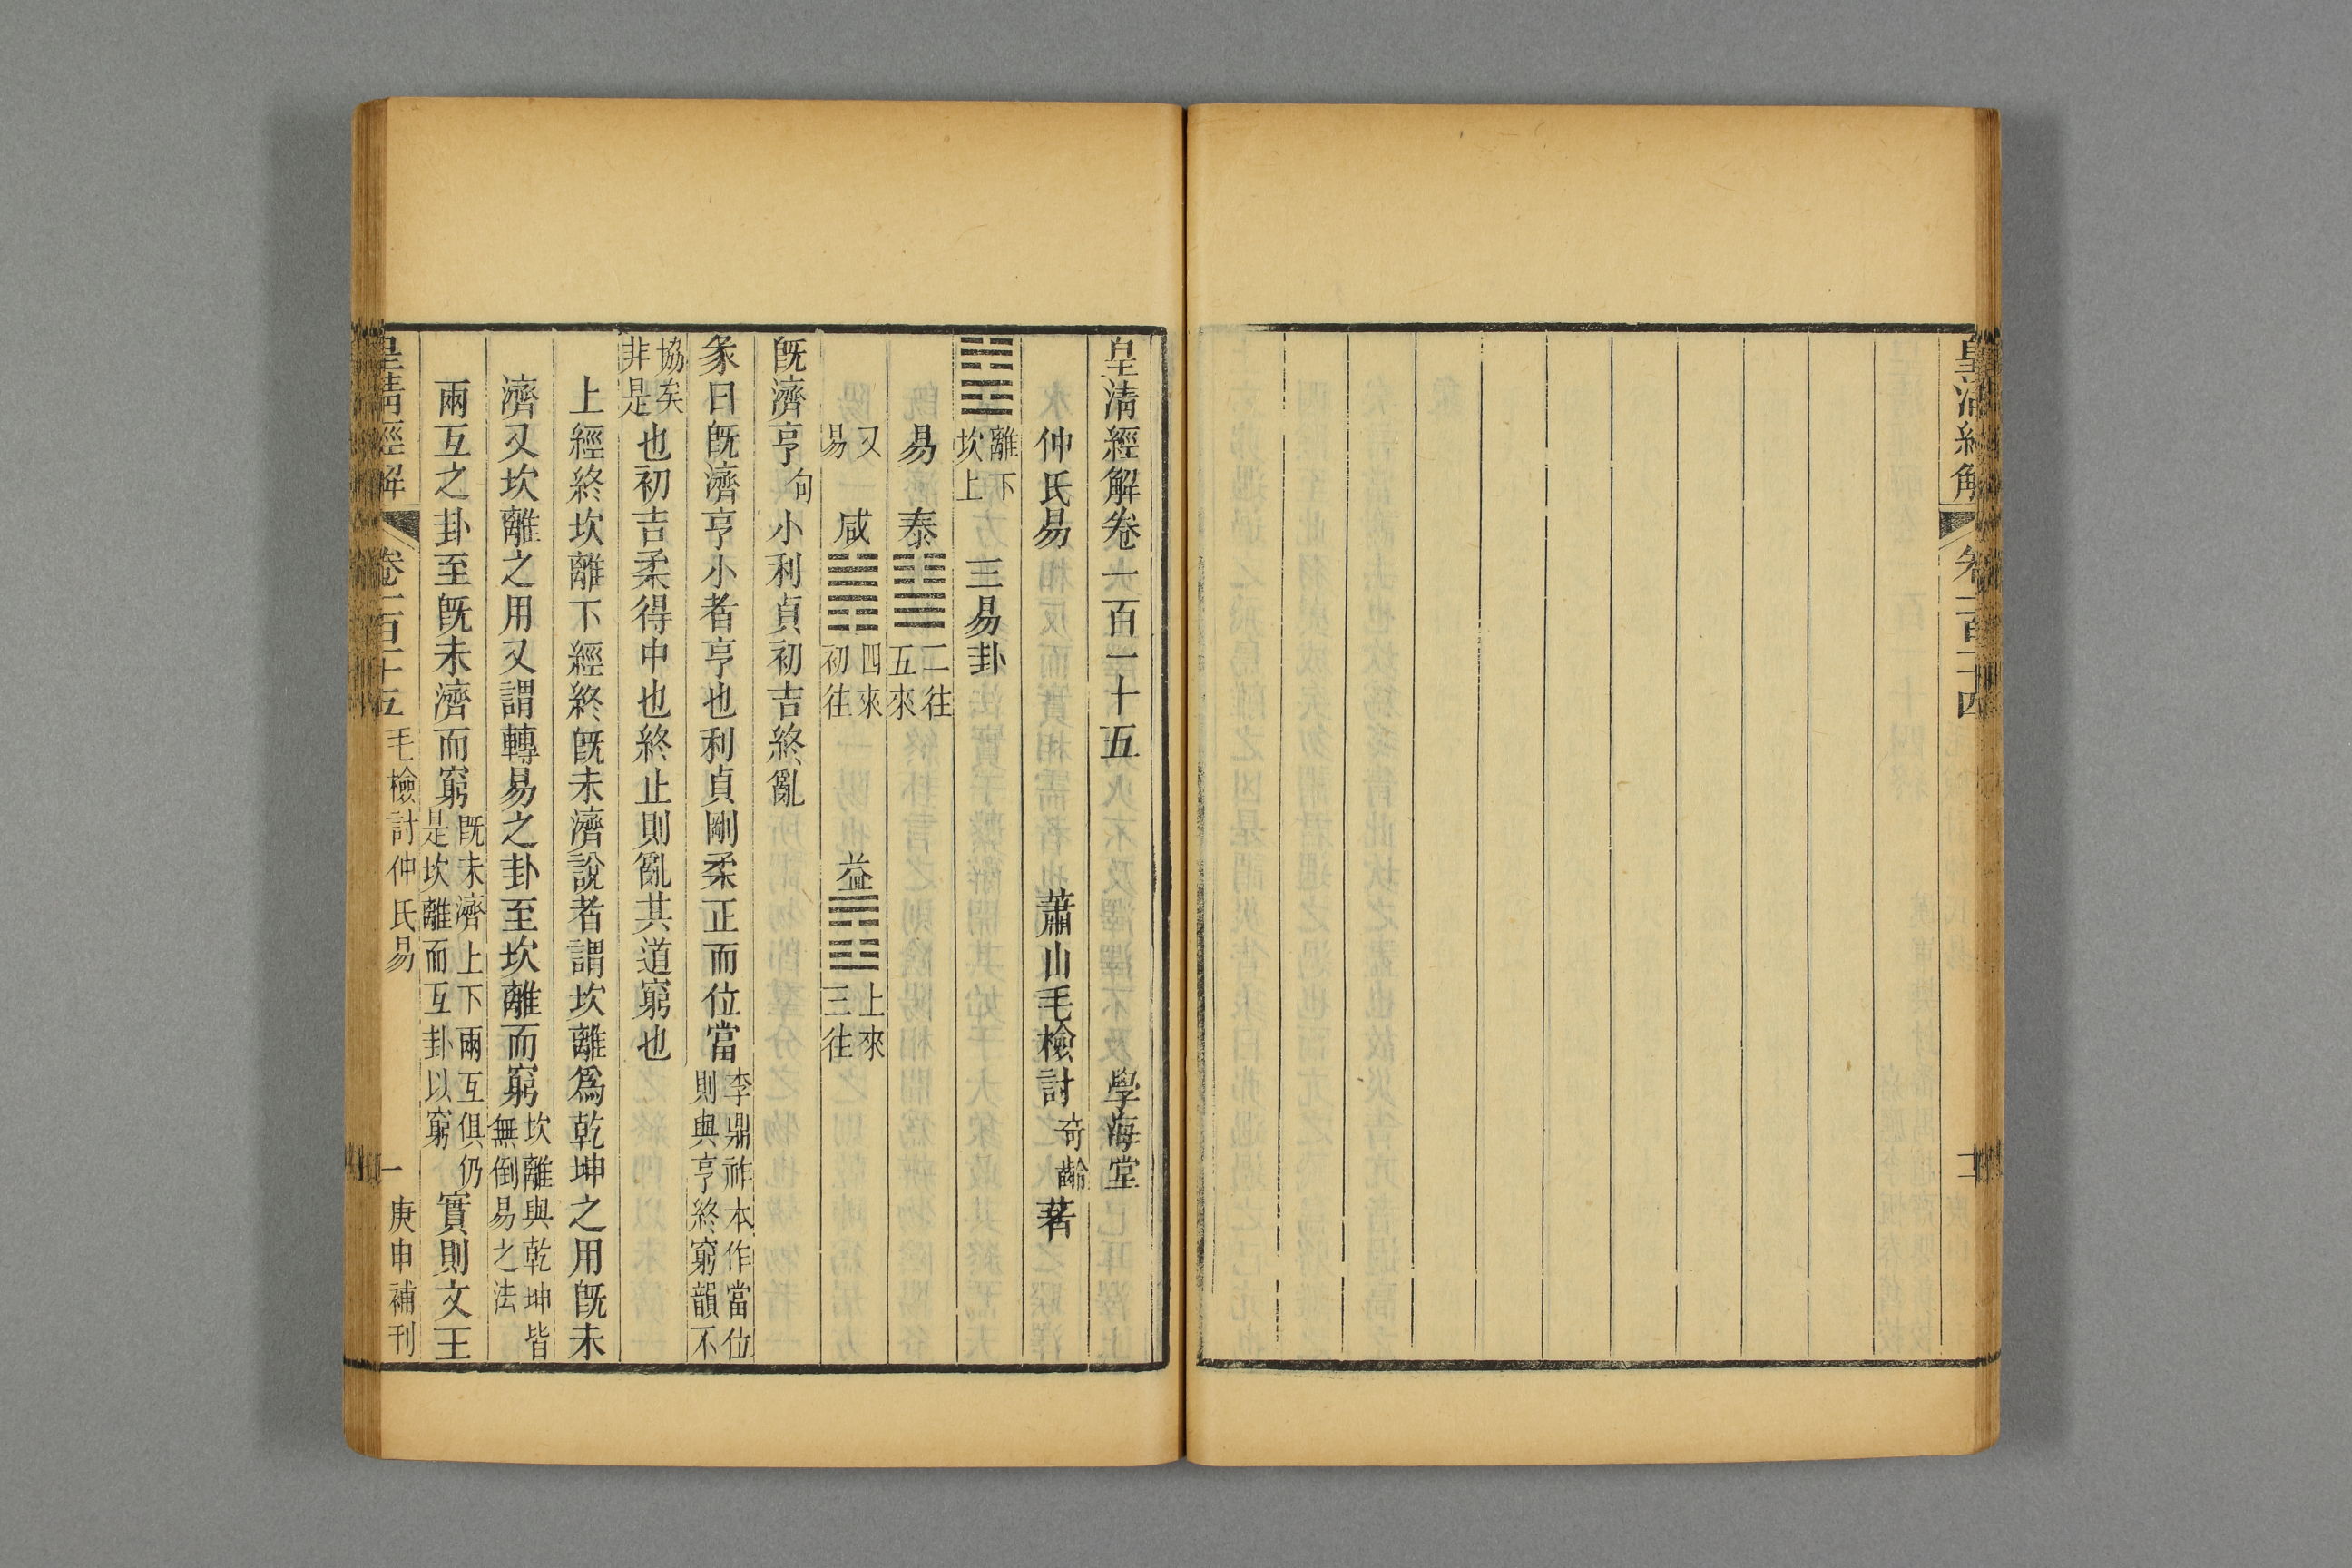 皇清經解
卷一百一十四
皇清經解卷一百一十五 學海堂
仲氏易 蕭山毛檢討奇齡著
䷾離下坎上 三易卦
易 泰䷊二往五來
又易 咸䷞四來初往 益䷩上來三往
旣濟亨句小利貞初吉終亂
彖曰旣濟亨小者亨也利貞剛柔正而位當李鼎祚本作當位則與亨終窮韻不
協矣非是也初吉柔得中也終止則亂其道窮也
上經終坎離下經終旣未濟說者謂坎離爲乾坤之用旣未
濟又坎離之用又謂轉易之卦至坎離而窮坎離與乾坤皆無倒易之法
兩互之卦至旣未濟而窮旣未濟上下兩互俱仍是坎離而互卦以窮實則文王
皇清經解 卷一百一十五 毛檢討仲氏易 一 庚申補刊